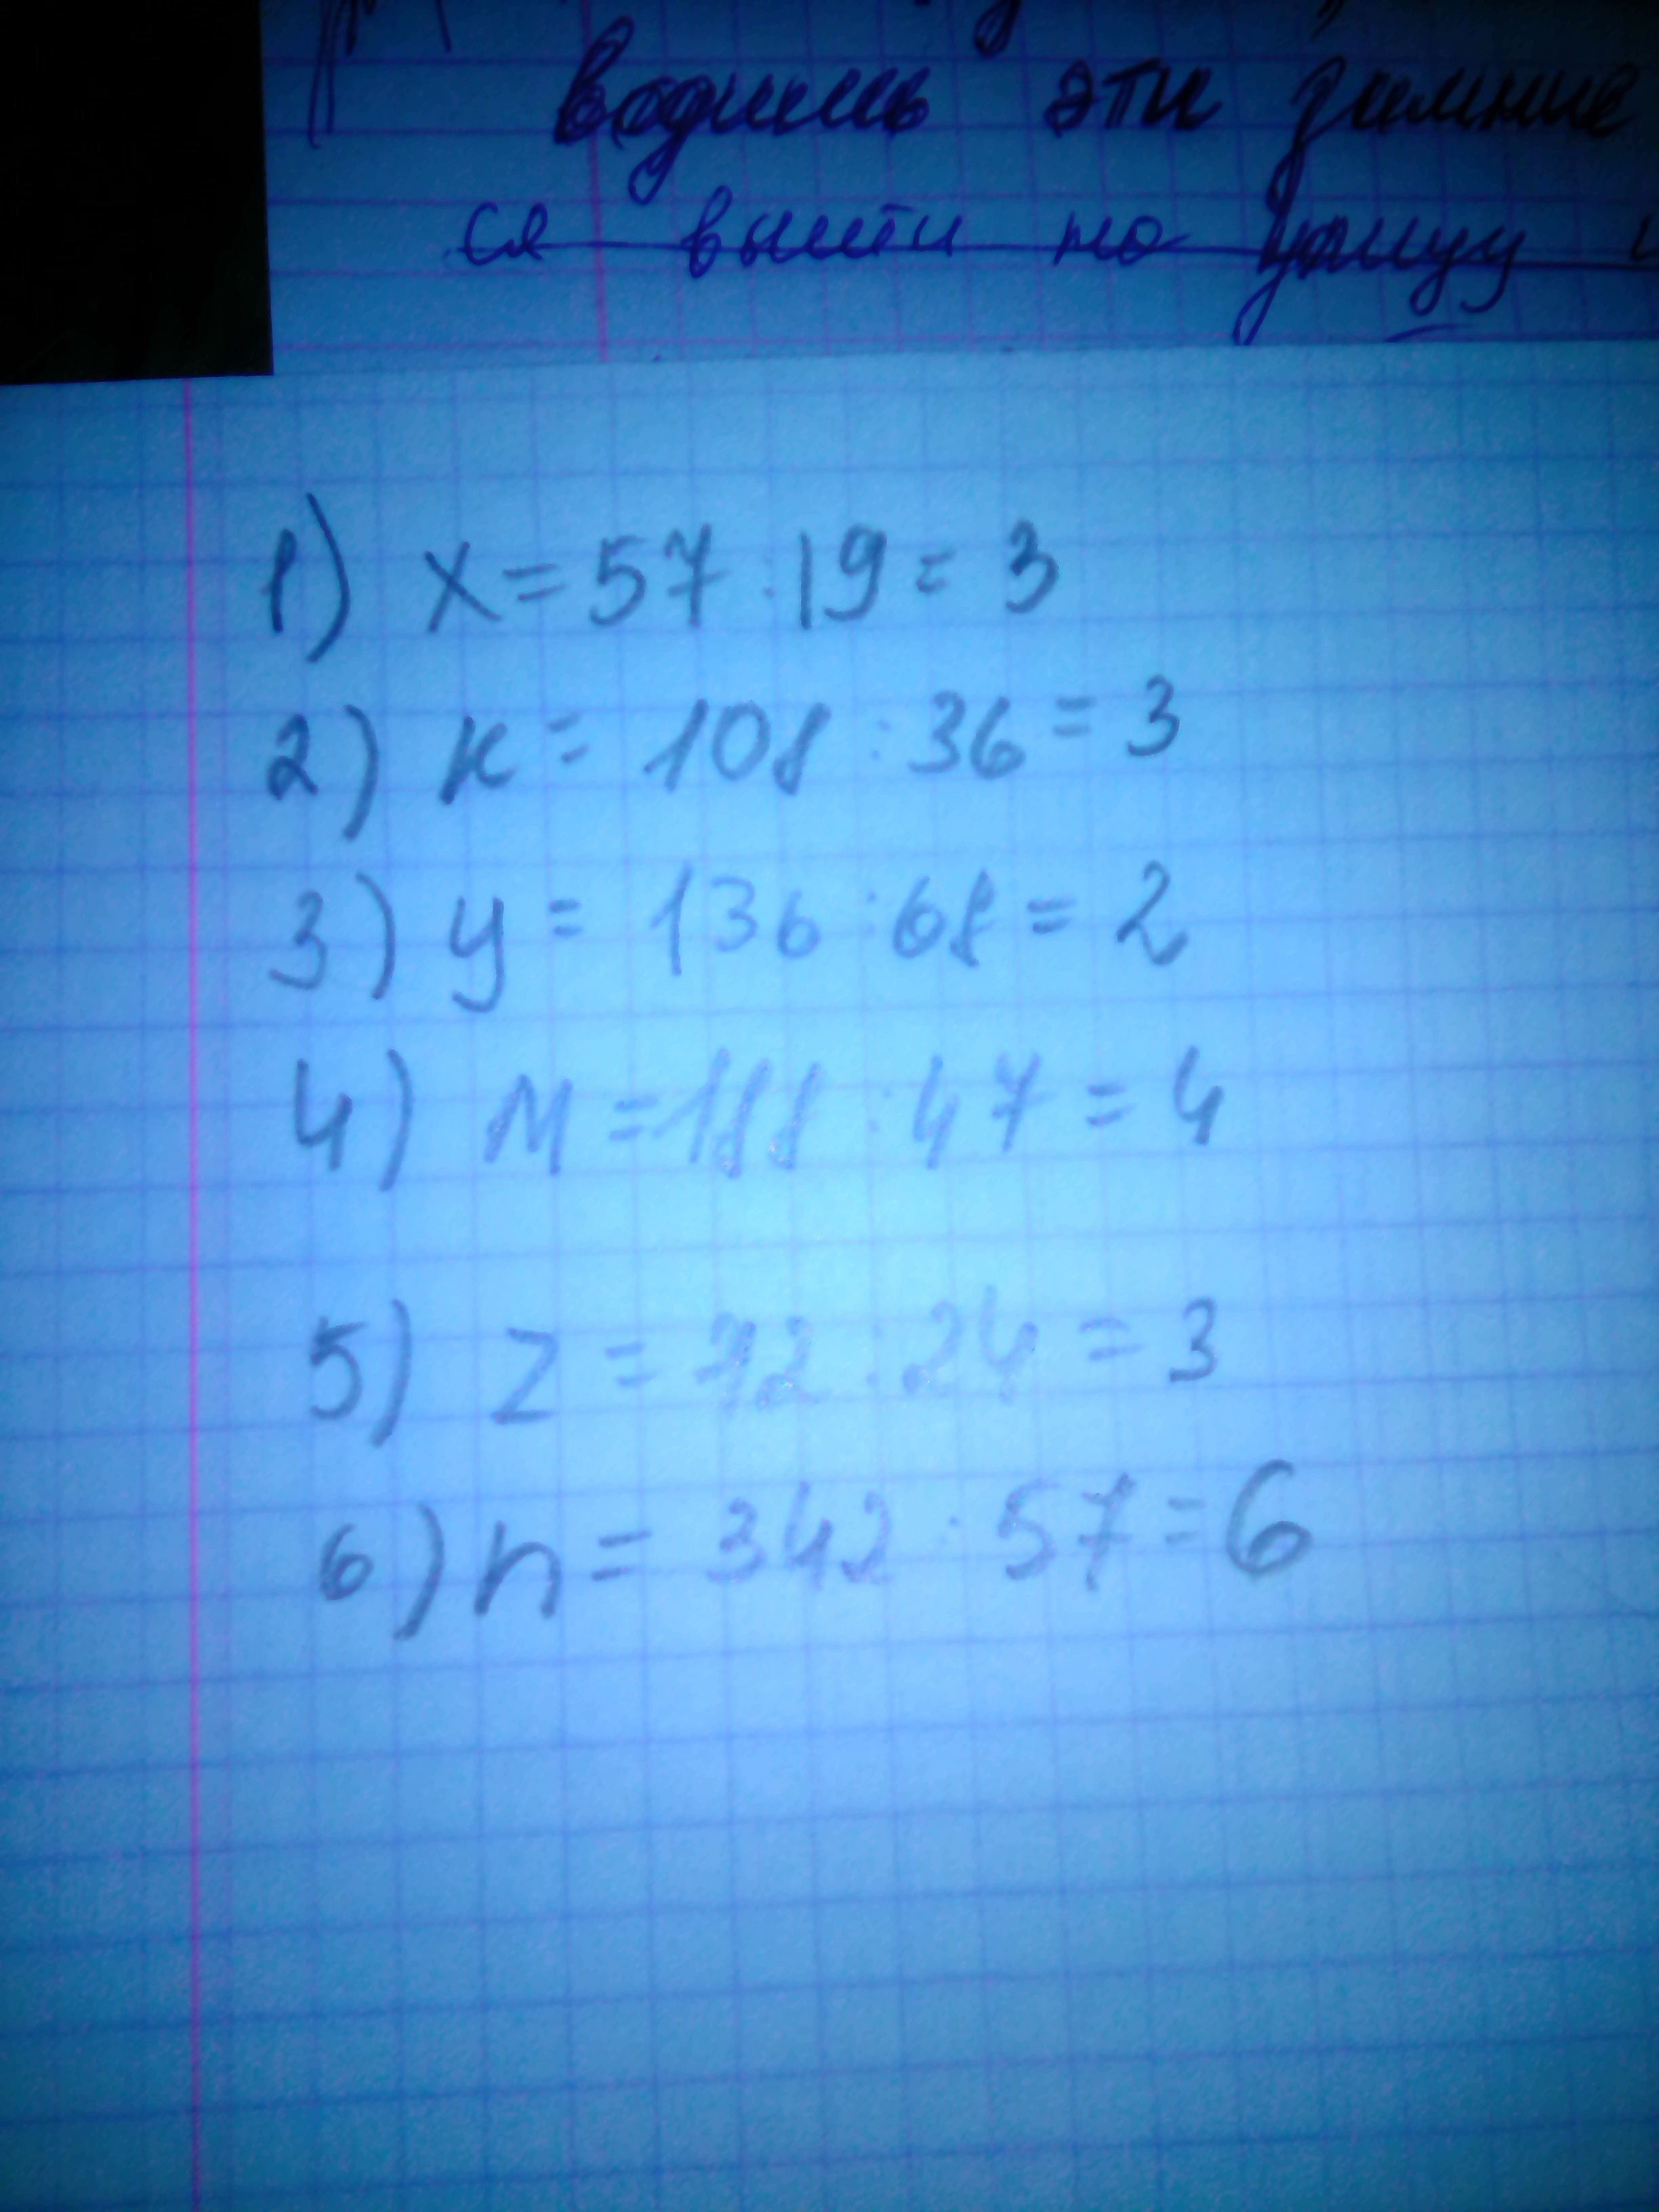 водишь эти зимние
ся выйти на улицу
1) x = 57 : 19 = 3
2) к = 108 : 36 = 3
3) y = 136 : 68 = 2
4) M = 188 : 47 = 4
5) z = 72 : 24 = 3
6) n = 342 : 57 = 6